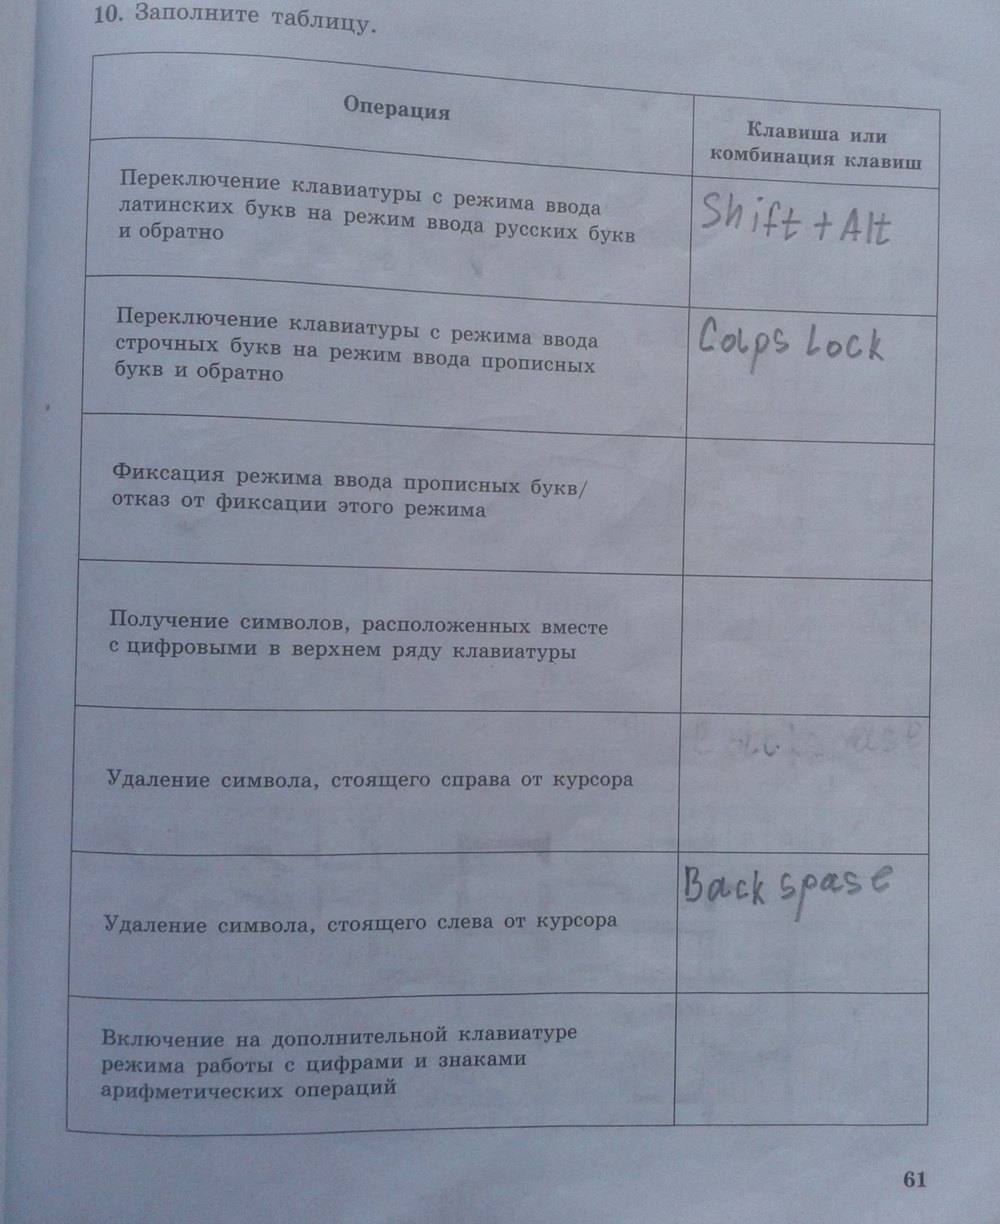 10. Заполните таблицу.
Операция
Клавиша или
комбинация клавиш
Переключение клавиатуры с режима ввода
латинских букв на режим ввода русских букв
и обратно
Shift + Alt
Переключение клавиатуры с режима ввода
строчных букв на режим ввода прописных
букв и обратно
Caps Lock
Фиксация режима ввода прописных букв/
отказ от фиксации этого режима
Получение символов, расположенных вместе
с цифровыми в верхнем ряду клавиатуры
Удаление символа, стоящего справа от курсора
Удаление символа, стоящего слева от курсора
Back spase
Включение на дополнительной клавиатуре
режима работы с цифрами и знаками
арифметических операций
61